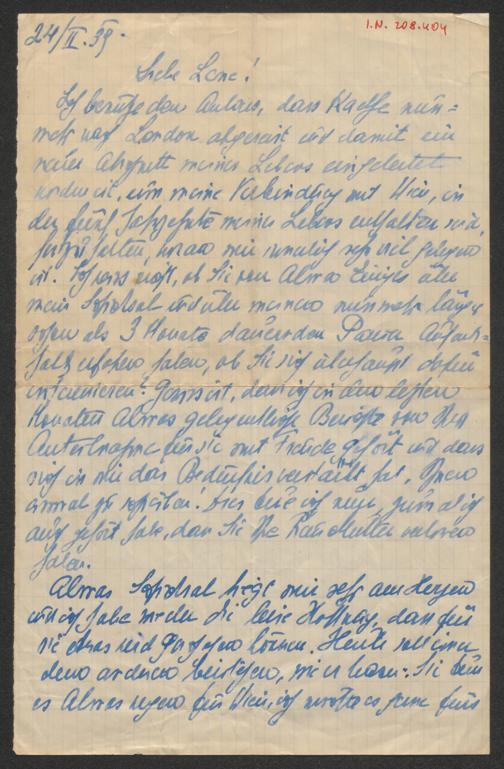 I.N. 208.404
24/II. 39.
Liebe Lene!
Ich benütze den Anlass, dass Kaethe nun=
mehr nach London abgereist und damit ein
neuer Abschnitt meines Lebens eingeleitet
worden ist, um meine Verbindung mit Wien, in
der fünf Jahrzehnte meines Lebens enthalten sind,
woran mir unendlich sehr viel gelegen
ist. Ich weiss nicht, ob Sie von Alma Einiges über
mein Schicksal und über meinen nunmehr länger
schon als 3 Monate dauernden Pariser Aufent=
halt erfahren haben, ob Sie sich überhaupt dafür
interessieren. Gewiss ist, dass ich in den letzten
Monaten Almas gelegentliche Berichte von Ihrer
Anteilnahme für sie mit Freude gehört und dass
sich in mir das Bedürfnis verstärkt hat, Ihnen
einmal zu schreiben. Dies tue ich nun, zumal ich
auch gehört habe, dass Sie Ihre Frau Mutter verloren
haben.
Almas Schicksal liegt mir sehr am Herzen
und ich habe weder die leise Hoffnung, dass für
sie etwas wird geschehen können. Heute soll einer
dem anderen beistehen, wie er kann. Sie tun
es Almas wegen für Wien, ich möchte es gerne fürs